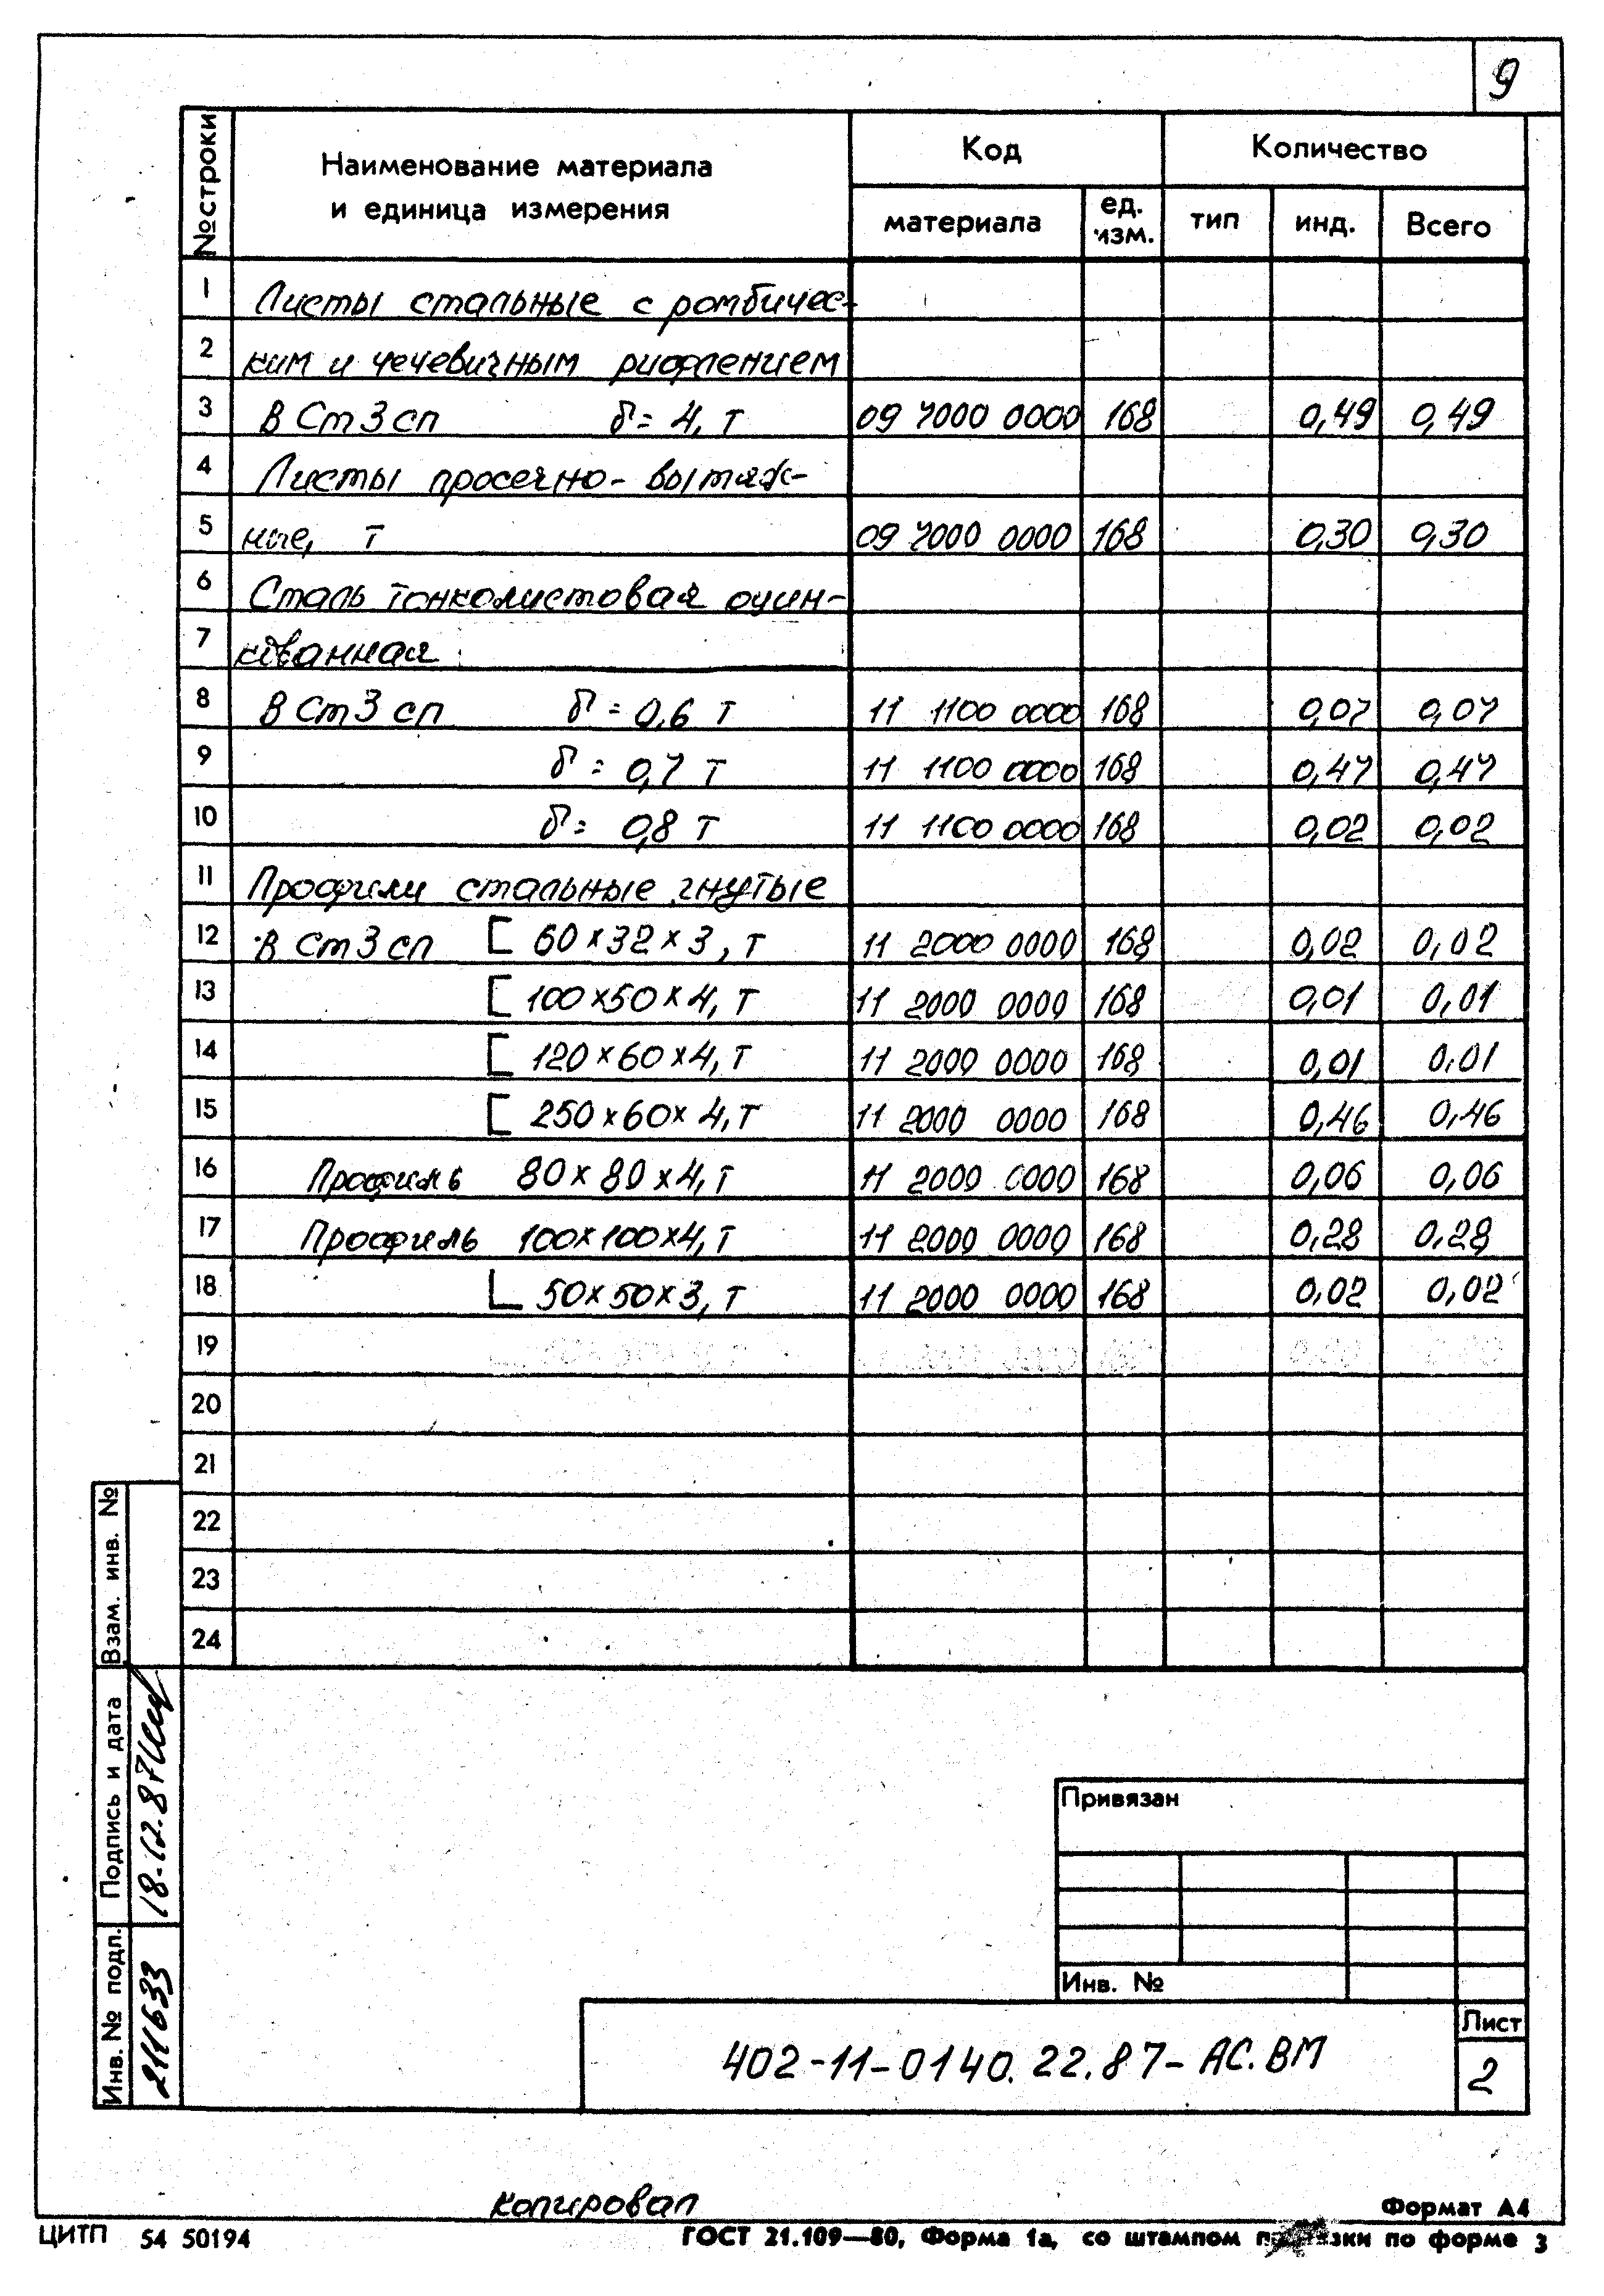 9
№ строки
Наименование материала
и единица измерения
Код
Количество
материала
ед.
изм.
тип
инд.
Всего
1 Листы стальные с ромбичес-
2 ким и чечевичным рифлением
3 В Ст 3 сп δ = 4, т 09 7000 0000 168 0,49 0,49
4 Листы просечно-вытяж-
5 ные, т 09 7000 0000 168 0,30 0,30
6 Сталь тонколистовая оцин-
7 кованная
8 В Ст 3 сп δ = 0,6 т 11 1100 0000 168 0,07 0,07
9 δ = 0,7 т 11 1100 0000 168 0,47 0,47
10 δ = 0,8 т 11 1100 0000 168 0,02 0,02
11 Профили стальные гнутые
12 В Ст 3 сп [ 60×32×3, т 11 2000 0000 168 0,02 0,02
13 [ 100×50×4, т 11 2000 0000 168 0,01 0,01
14 [ 120×60×4, т 11 2000 0000 168 0,01 0,01
15 [ 250×60×4, т 11 2000 0000 168 0,46 0,46
16 Профиль 80×80×4, т 11 2000 0000 168 0,06 0,06
17 Профиль 100×100×4, т 11 2000 0000 168 0,28 0,28
18 L 50×50×3, т 11 2000 0000 168 0,02 0,02
19
20
21
22
23
24
Взам. инв. №
Подпись и дата
18-12.87
Инв. № подл.
211633
Привязан
Инв. №
402-11-0140.22.87-АС.ВМ
Лист
2
Копировал
Формат А4
ЦИТП 54 50194
ГОСТ 21.109—80, Форма 1а, со штампом по форме 3